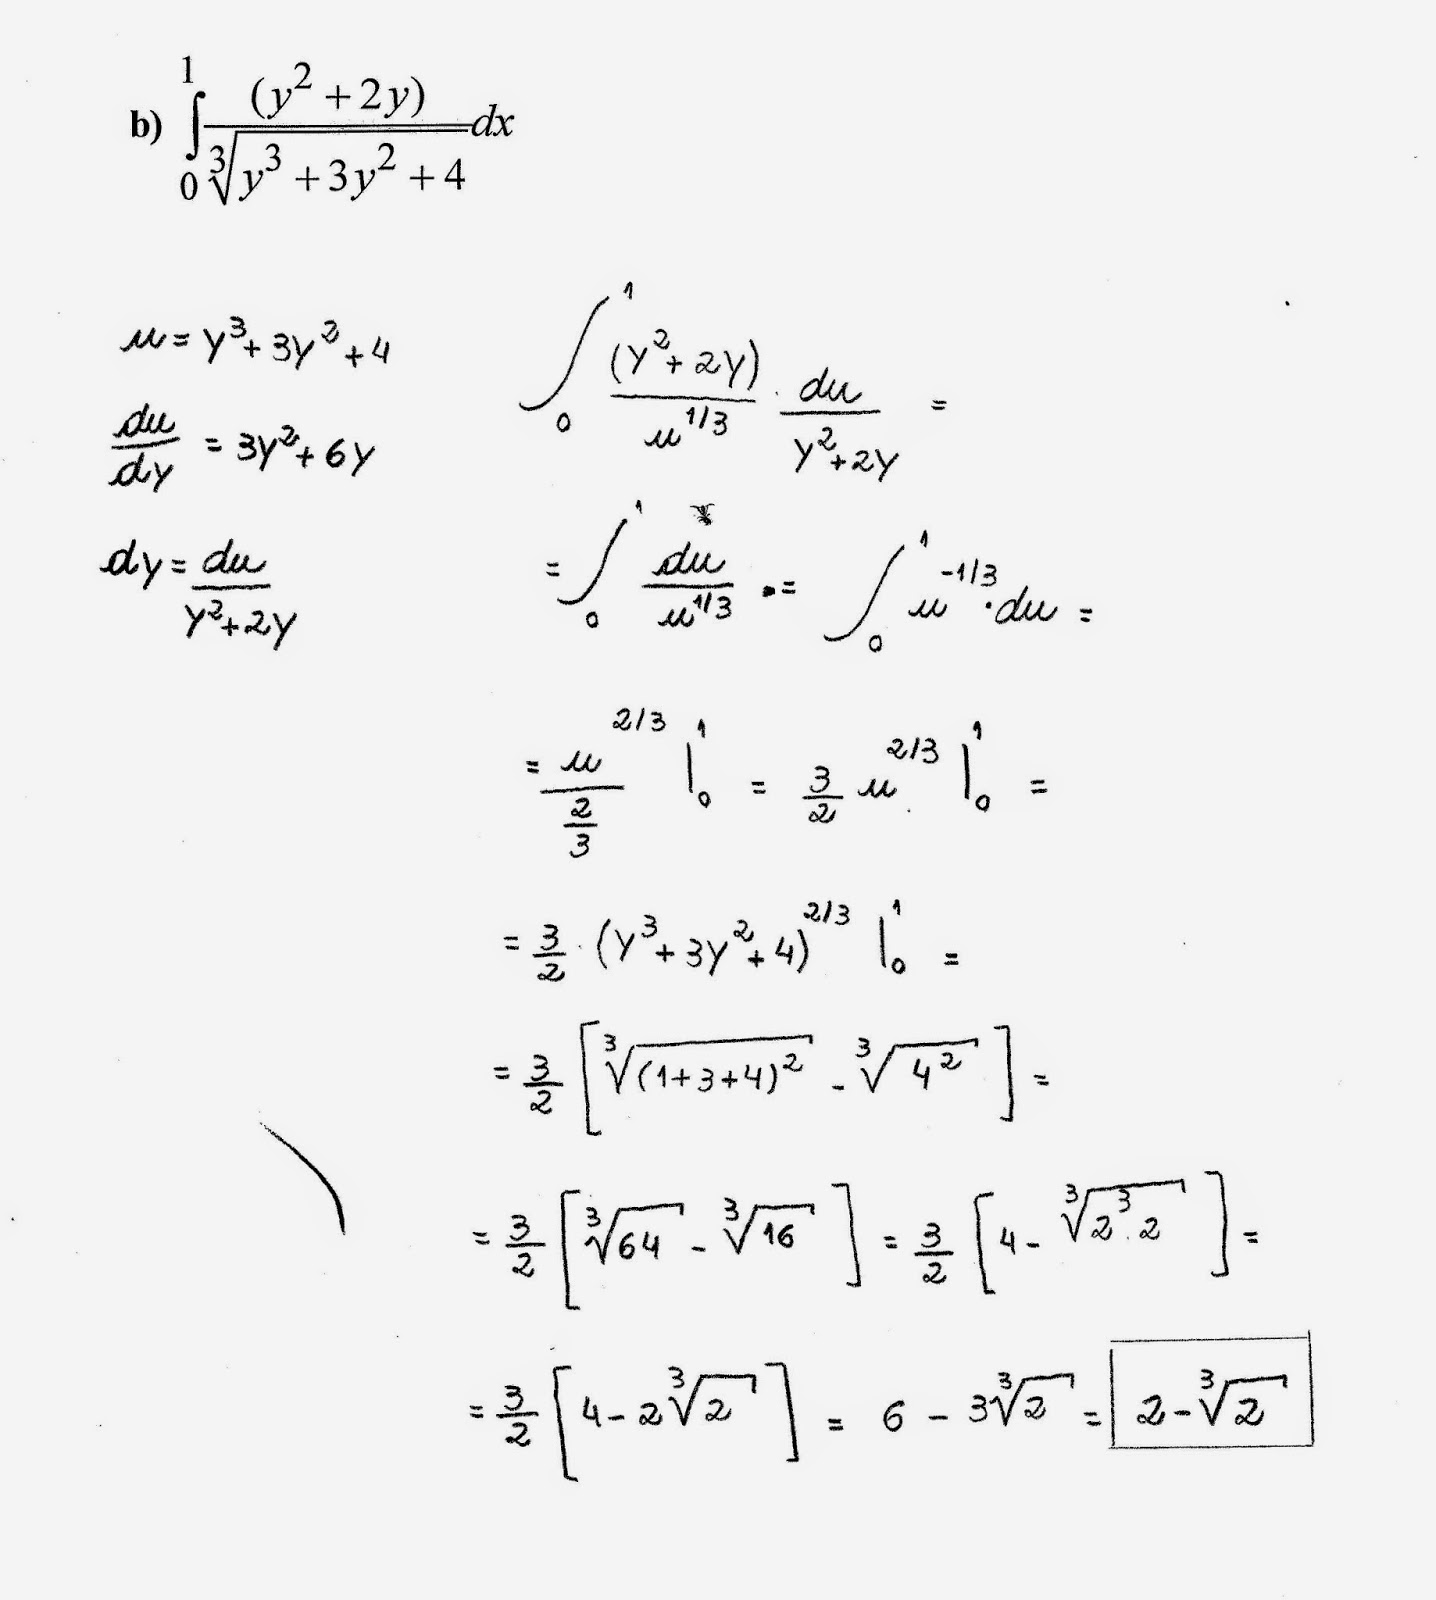 b) ∫₀¹ (y² + 2y) / ∛(y³ + 3y² + 4) dx
u = y³ + 3y² + 4
du/dy = 3y² + 6y
dy = du / (y² + 2y)
∫₀¹ (y² + 2y) / u^(1/3) · du / (y² + 2y) =
= ∫₀¹ du / u^(1/3) · = ∫₀¹ u^(-1/3) · du =
= u^(2/3) / (2/3) |₀¹ = 3/2 u^(2/3) |₀¹ =
= 3/2 · (y³ + 3y² + 4)^(2/3) |₀¹ =
= 3/2 [∛((1+3+4)²) - ∛(4²)] =
= 3/2 [∛64 - ∛16] = 3/2 [4 - ∛(2³·2)] =
= 3/2 [4 - 2∛2] = 6 - 3∛2 = 2 - ∛2